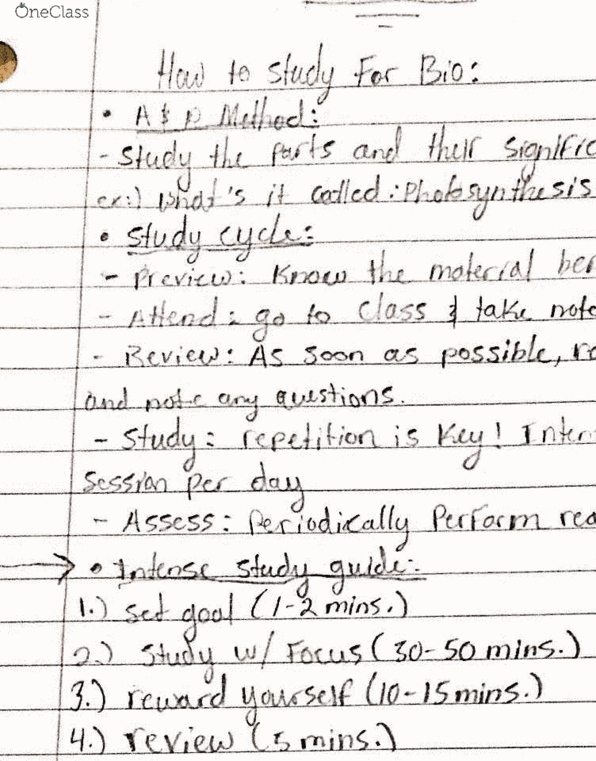 OneClass
How to Study For Bio:
• A & P Method:
- Study the parts and their signific
ex:) What's it called: Photosynthesis
• Study cycle:
- Preview: Know the material be
- Attend: go to Class & take note
- Review: As soon as possible, re
and note any questions.
- Study: repetition is Key! Inten
Session per day
- Assess: Periodically Perform rea
→ • Intense study guide:
1.) set goal (1-2 mins.)
2.) Study w/ Focus (30-50 mins.)
3.) reward yourself (10-15 mins.)
4.) review (5 mins.)